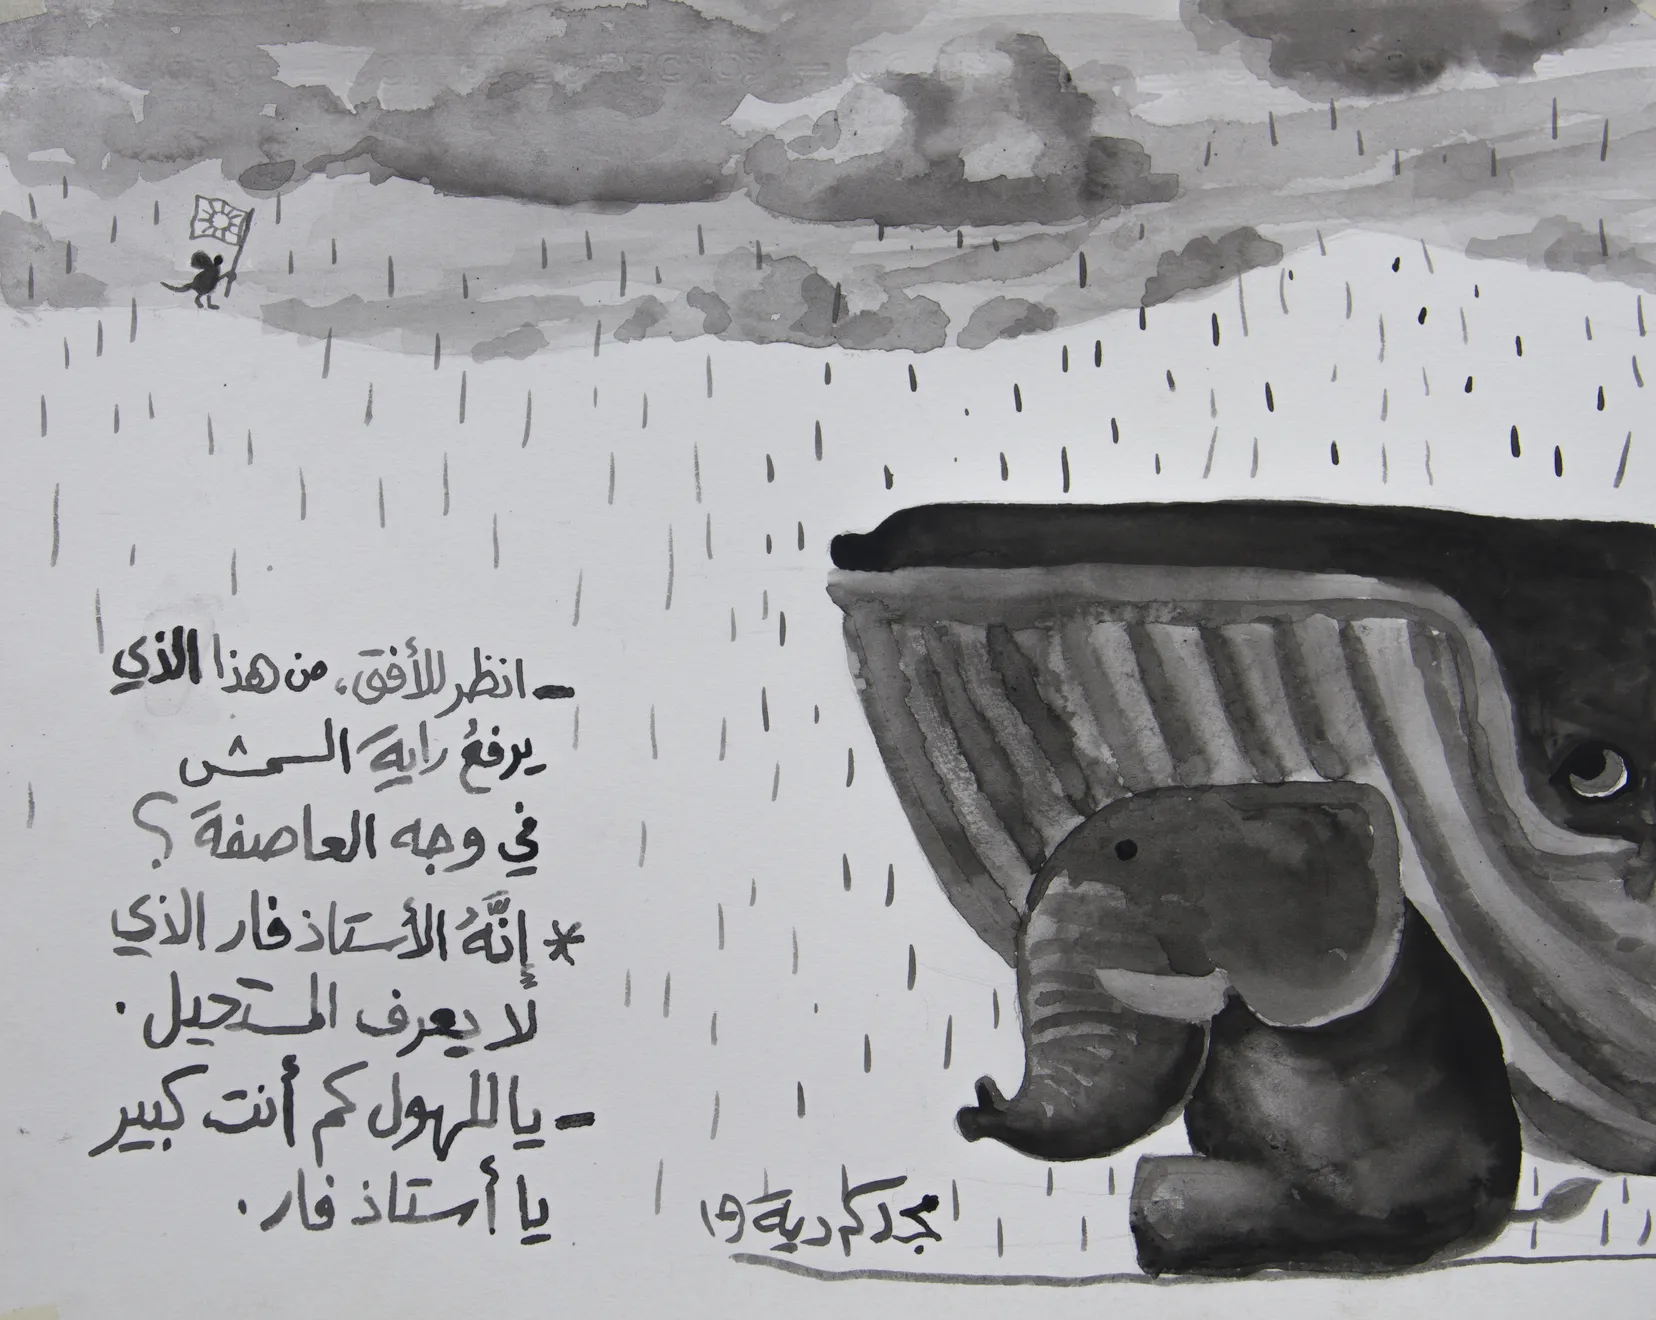 - انظر للأفق، من هذا الذي
يرفعُ رايةَ الشمس
في وجه العاصفة؟
* إنَّهُ الأستاذ فار الذي
لا يعرف المستحيل.
- يا للهول كم أنت كبير
يا أستاذ فار.
مجد كم دية ١٩